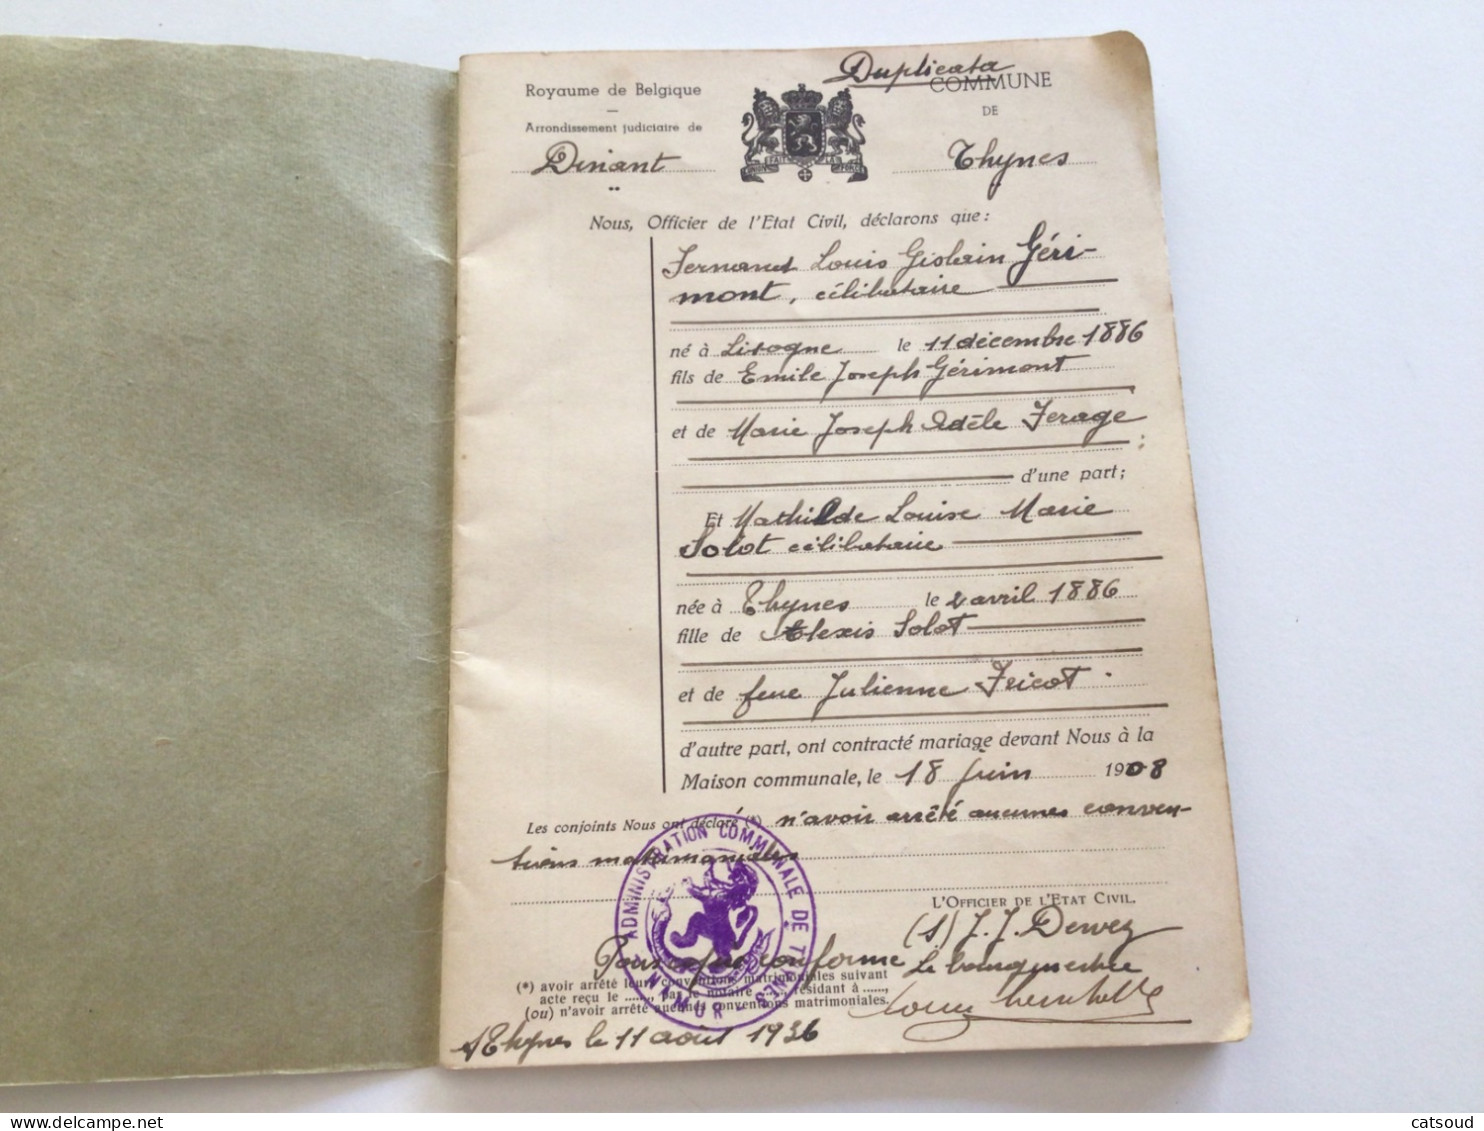 Duplicata
Royaume de Belgique
COMMUNE
Arrondissement judiciaire de
DE
Dinant
Thynes
Nous, Officier de l'Etat Civil, déclarons que :
Fernand Louis Gislain Géri-
mont, célibataire
né à Lisogne le 11 décembre 1886
fils de Emile Joseph Gérimont
et de Marie Joseph Adèle Ferage
d'une part;
Et Mathilde Louise Marie
Solot célibataire
née à Thynes le 2 avril 1886
fille de Alexis Solot
et de feue Julienne Fricot
d'autre part, ont contracté mariage devant Nous à la
Maison communale, le 18 juin 1908
Les conjoints Nous ont déclaré (*) n'avoir arrêté aucunes conven-
tions matrimoniales
ADMINISTRATION COMMUNALE DE THYNES
NAMUR
L'OFFICIER DE L'ETAT CIVIL.
(s) J. J. Dewez
Pour copie conforme
Le bourgmestre
(*) avoir arrêté leurs conventions matrimoniales suivant
acte reçu le ......, par le notaire ......, résidant à ......,
(ou) n'avoir arrêté aucunes conventions matrimoniales.
Thynes le 11 août 1936
delcampe.net
catsoud